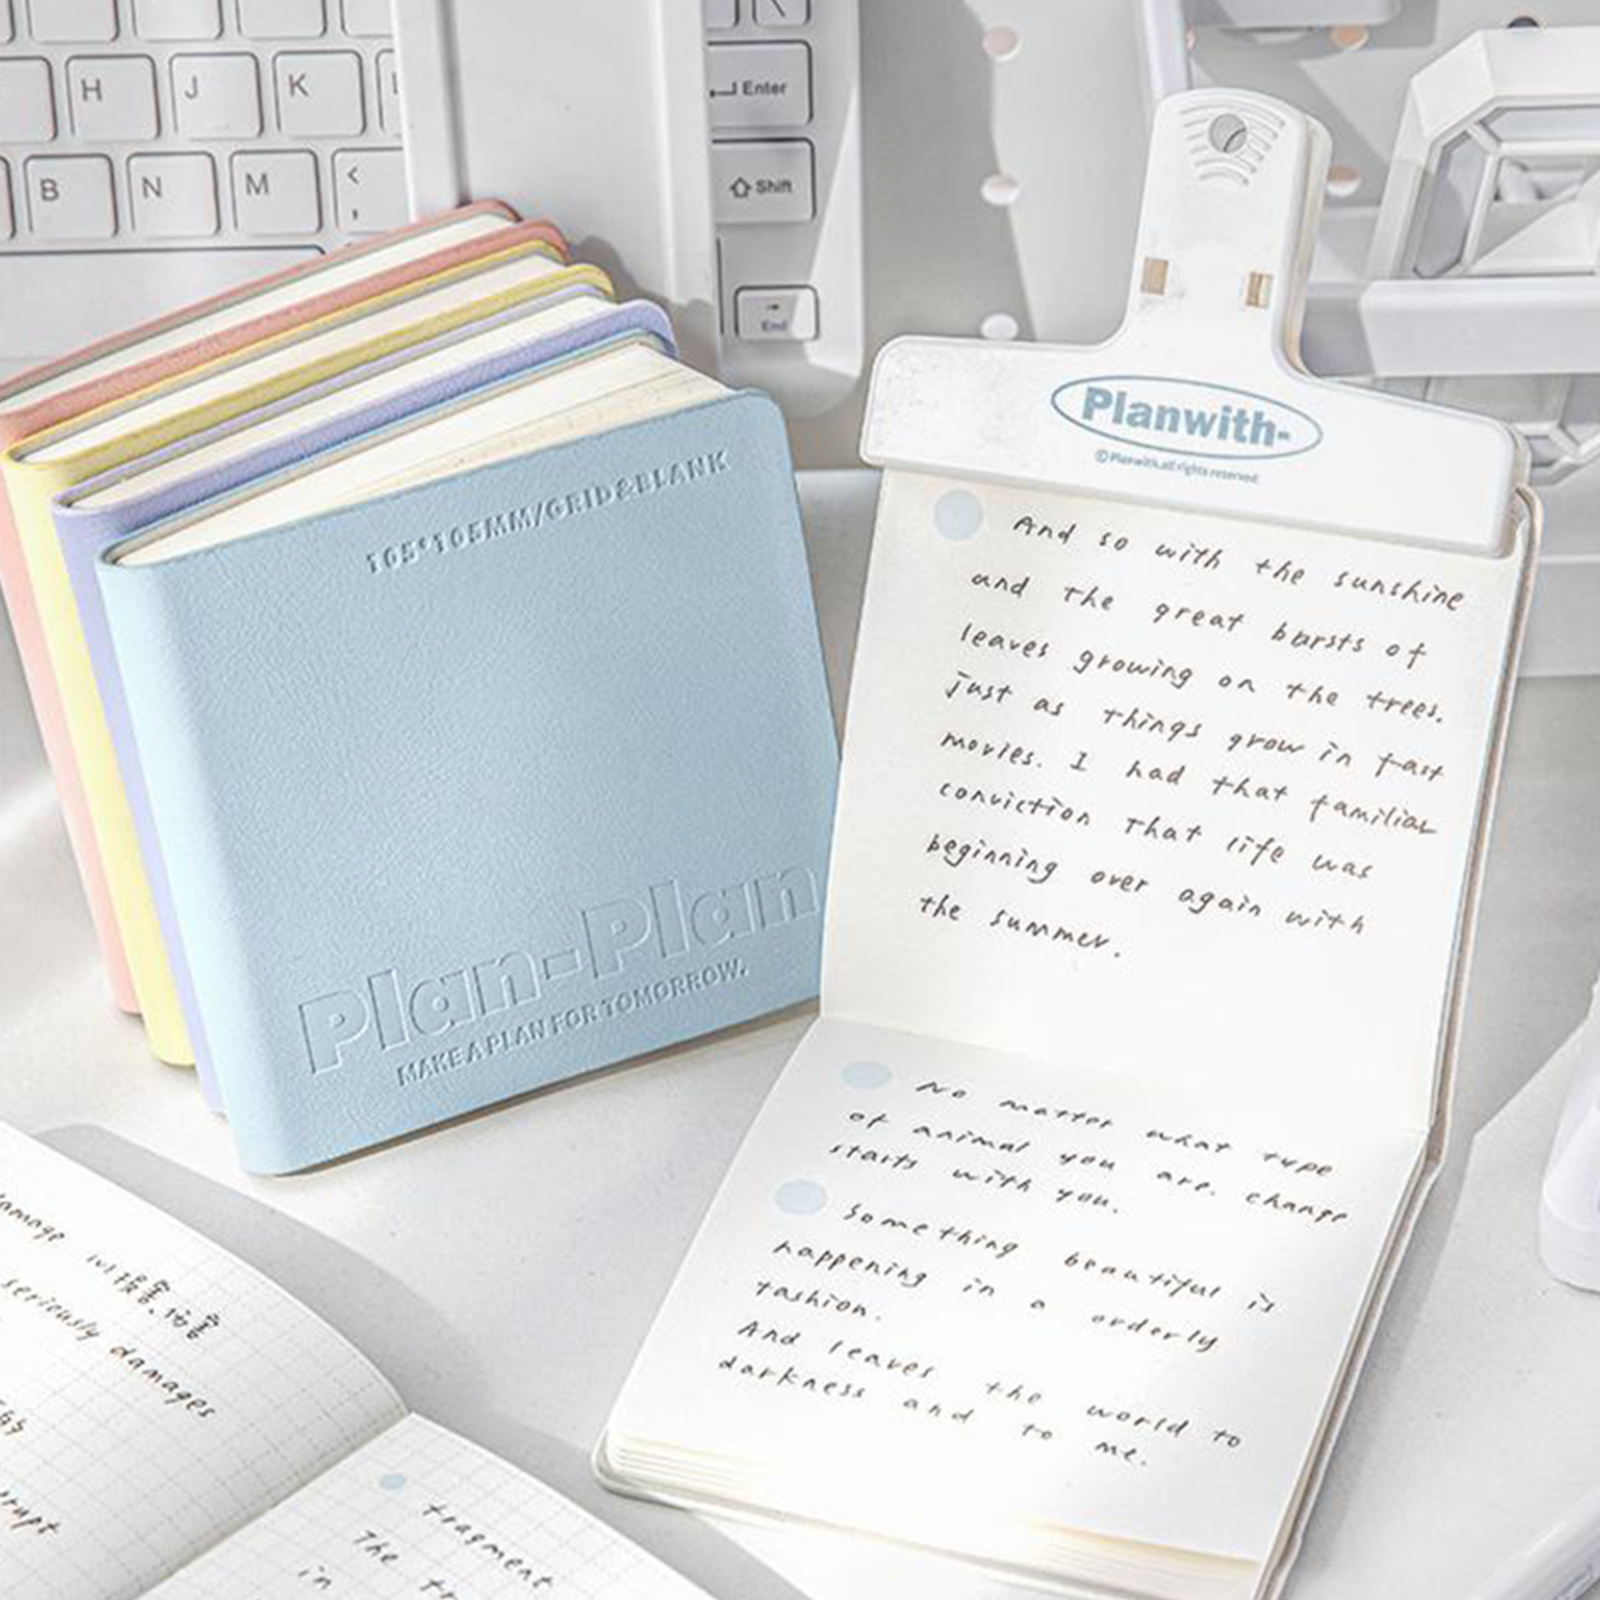 H J K
B N M <
,
Enter
Shift
End
105*105MM/GRID&BLANK
Plan-Plan
MAKE A PLAN FOR TOMORROW.
Planwith-
©Planwith.all rights reserved
And so with the sunshine
and the great bursts of
leaves growing on the trees.
just as things grow in fast
movies. I had that familiar
conviction that life was
beginning over again with
the summer.
No matter what type
of animal you are. change
starts with you.
Something beautiful is
happening in a orderly
fashion.
And leaves the world to
darkness and to me.
damage 损害,伤害
seriously damages
fragment
The
in